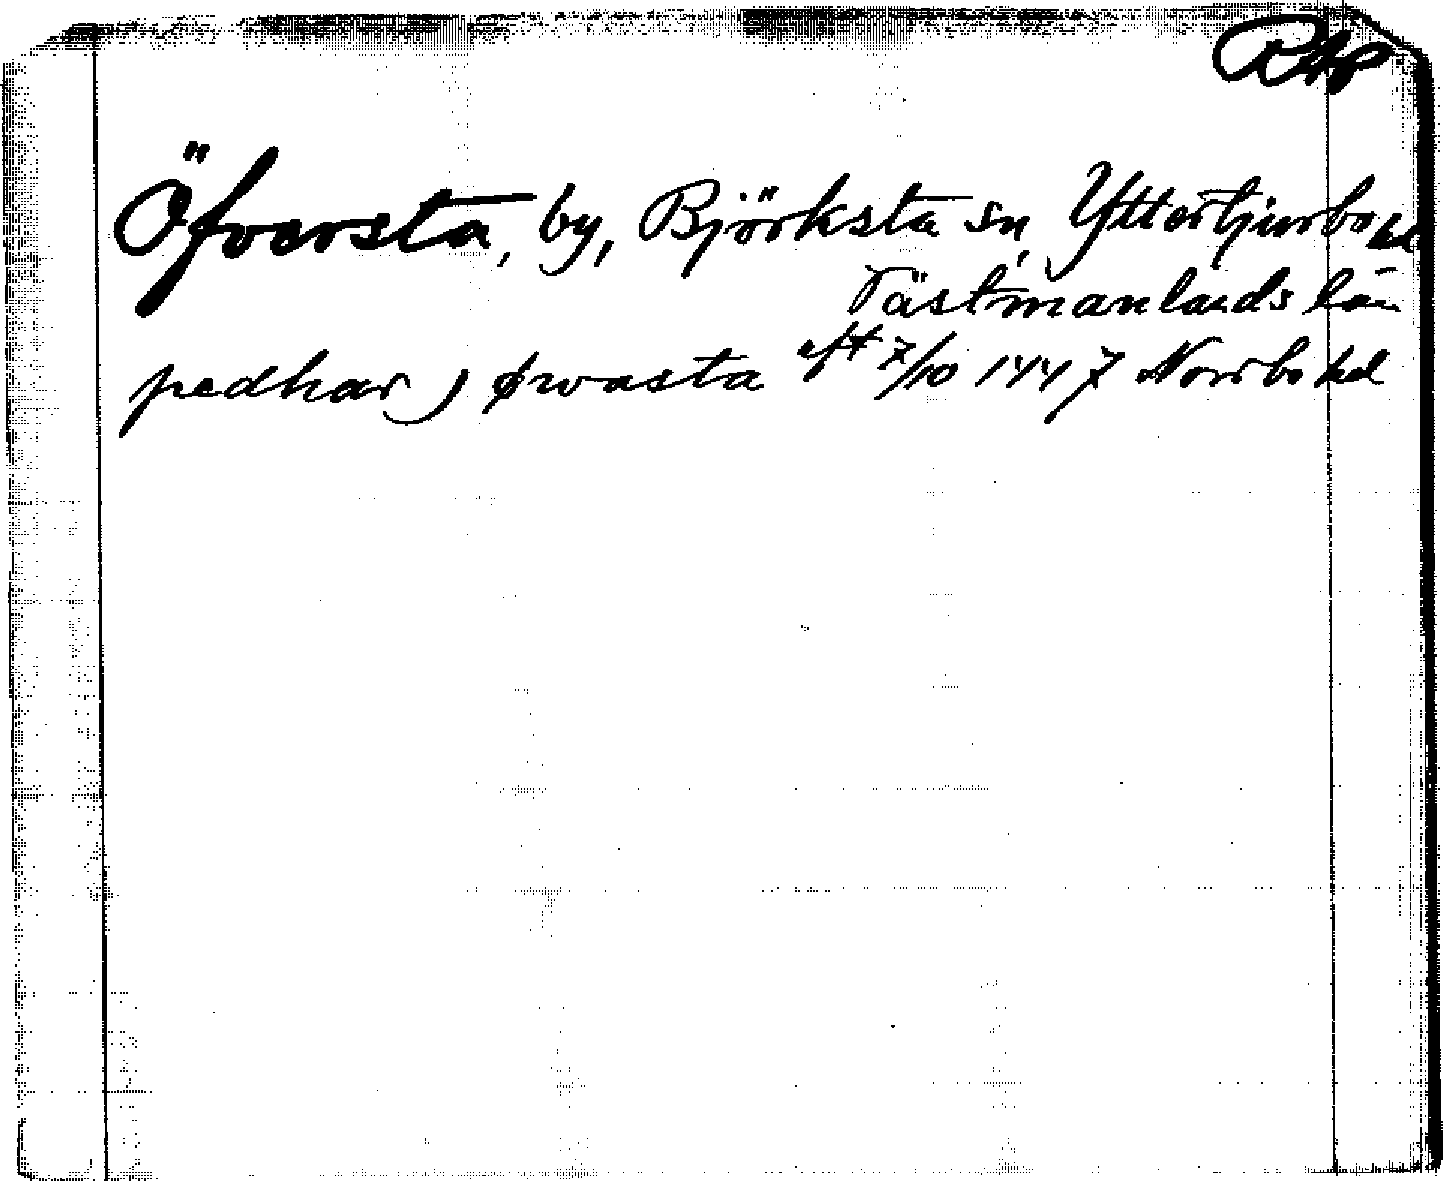 RAp
Öfversta, by, Björksta sn, Yttertjurbo hd
Västmanlands län
pedhar J ørwasta aft 7/10 1447 Norrbo hd